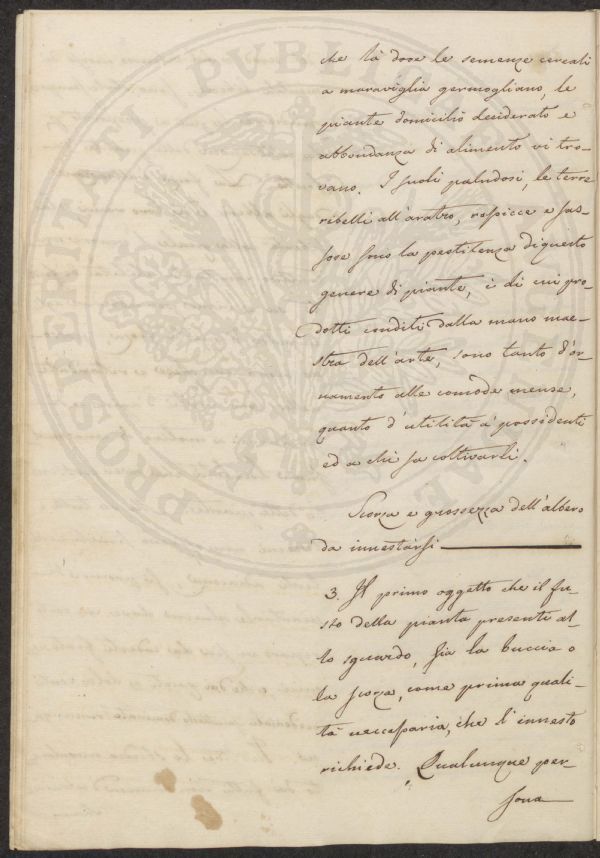 che là dove le semenze cereali
a maraviglia germogliano, le
piante domicilio desiderato e
abbondanza di alimento vi tro-
vano. I suoli paludosi, le terre
ribelli all'aratro, rossicce e sas-
sose sono la pestilenza di questo
genere di piante, i di cui pro-
dotti conditi dalla mano mae-
stra dell'arte, sono tanto d'or-
namento alle comode mense,
quanto d'utilità a' possidenti
ed a chi sa coltivarli.
Scorza e grossezza dell'albero
da innestarsi
3. Il primo oggetto che il fu-
sto della pianta presenti al-
lo sguardo, sia la buccia o
la scorza, come prima quali-
tà necessaria, che l'innesto
richiede. Qualunque per-
sona
PROSPERITATI PUBLICAE